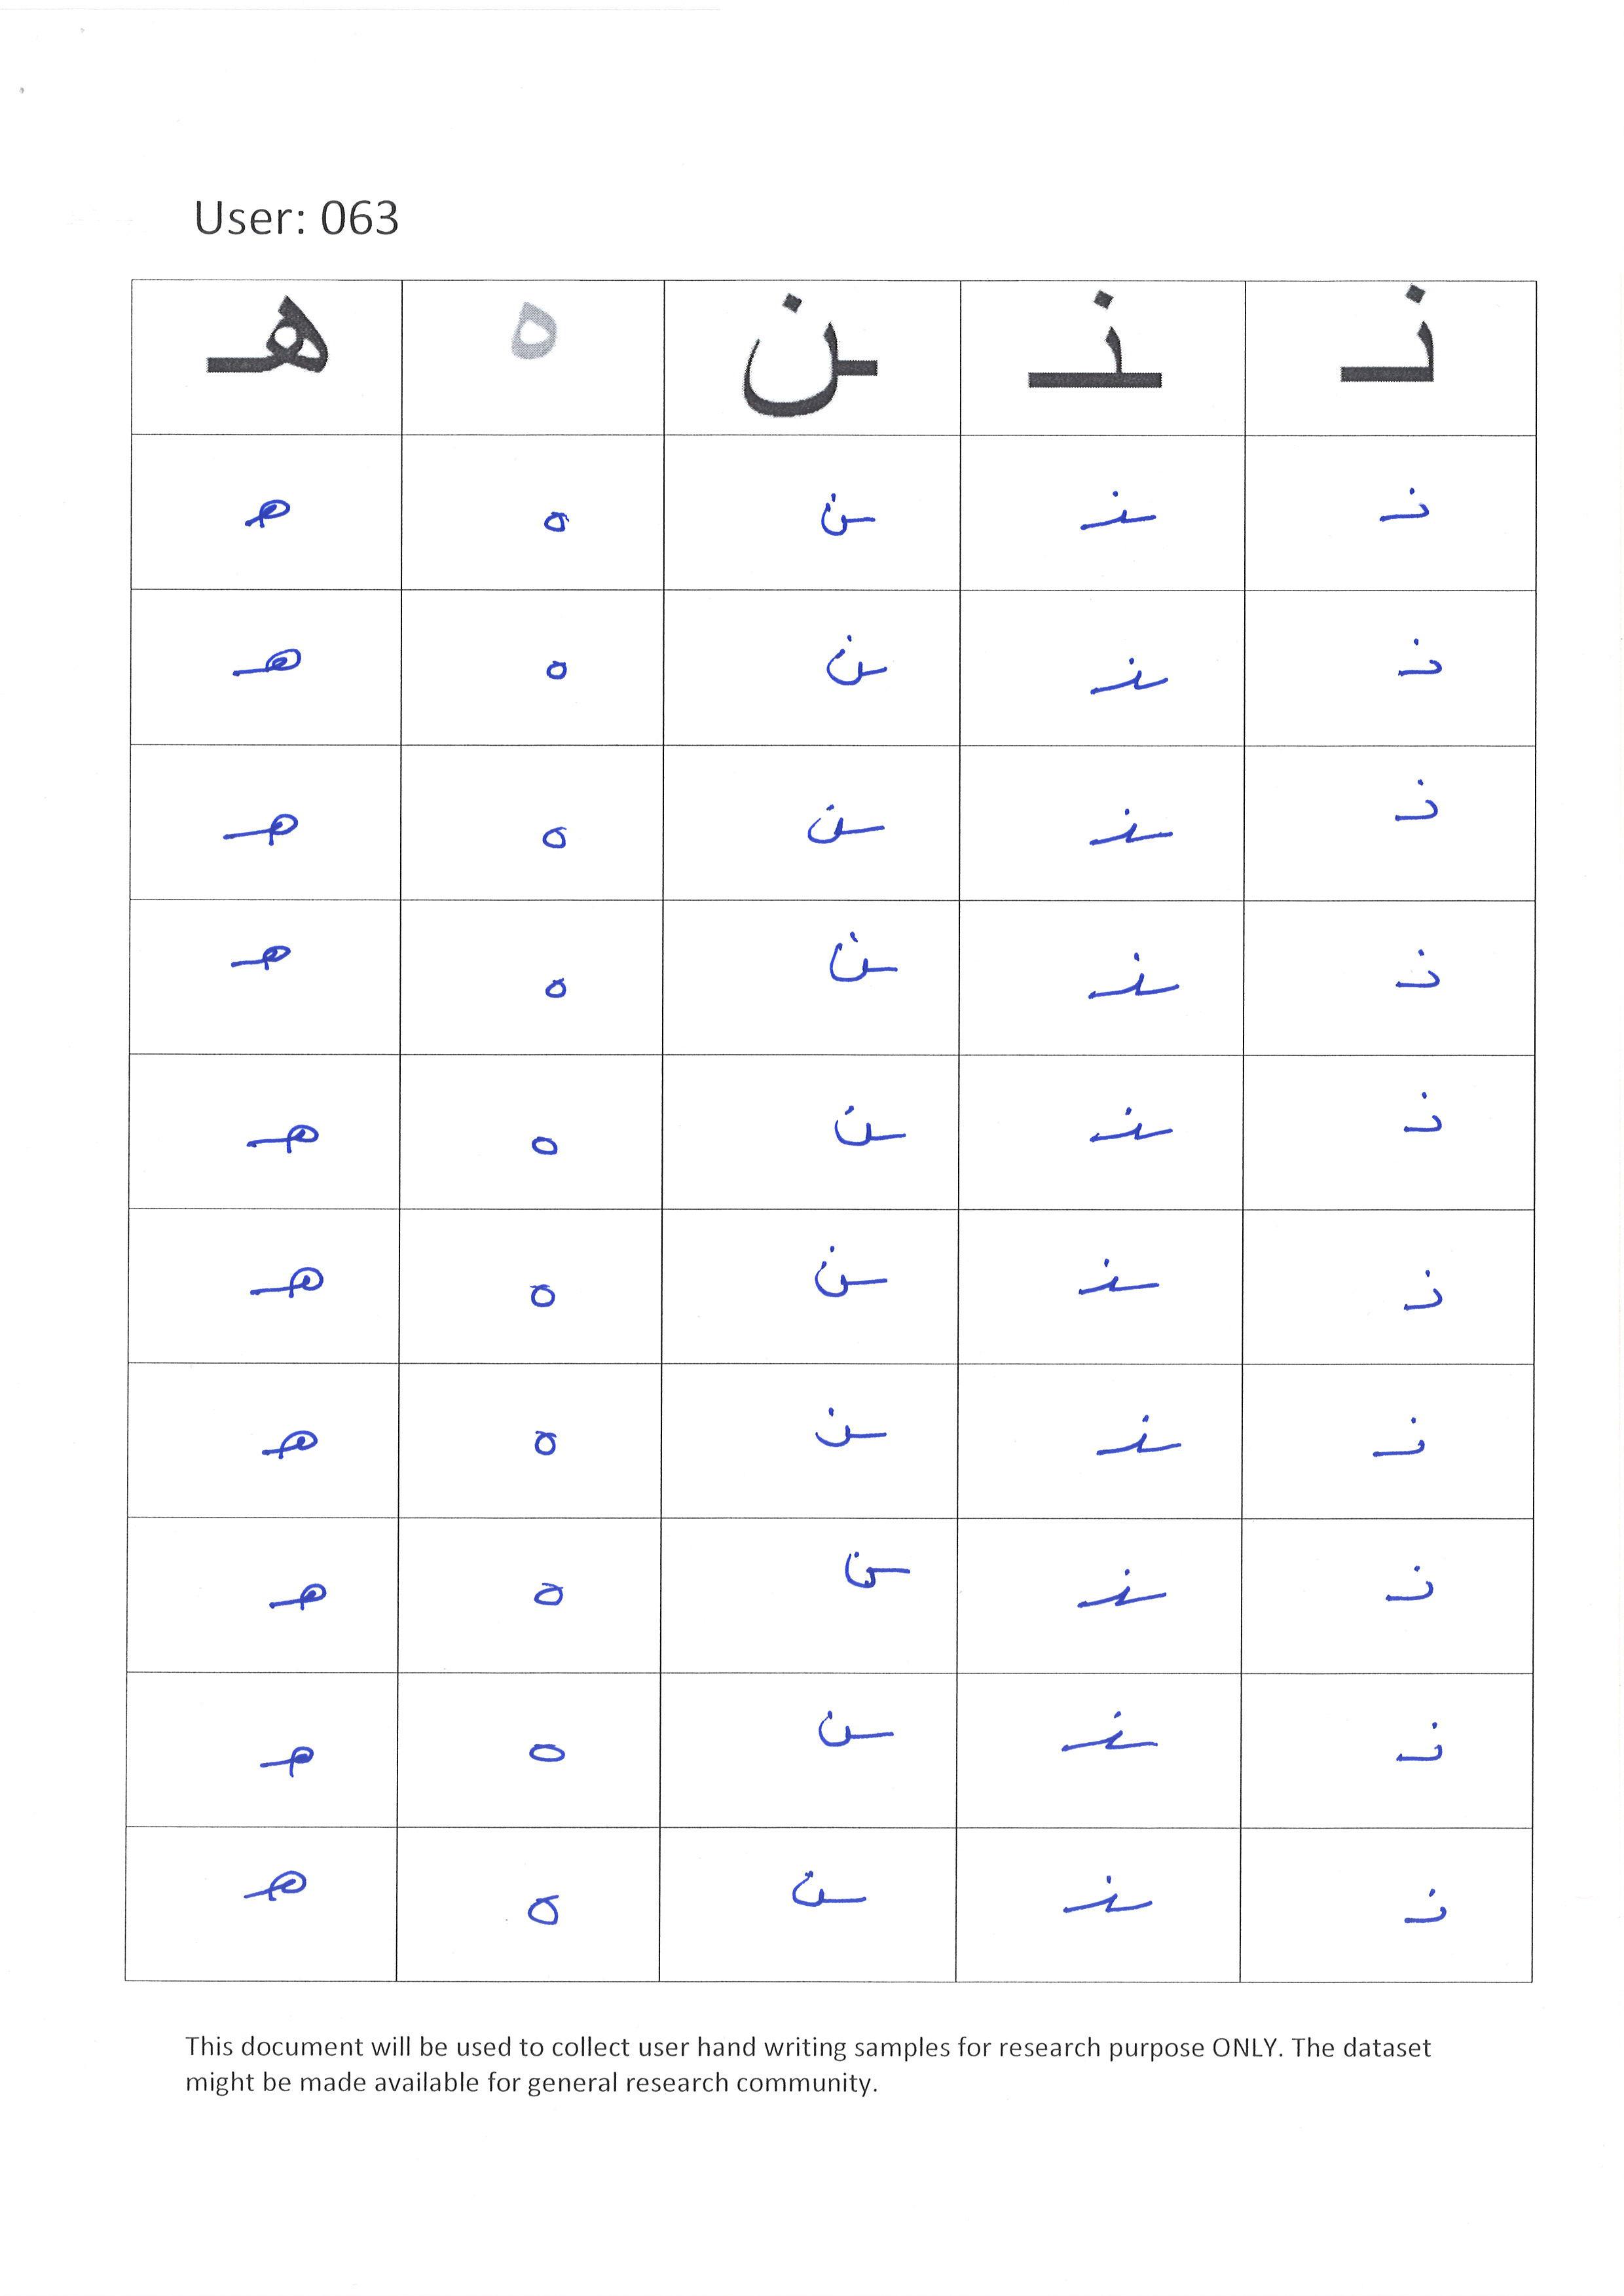 User: 063
نـ ـنـ ـن ه هـ
نـ ـنـ ـن ه هـ
نـ ـنـ ـن ه هـ
نـ ـنـ ـن ه هـ
نـ ـنـ ـن ه هـ
نـ ـنـ ـن ه هـ
نـ ـنـ ـن ه هـ
نـ ـنـ ـن ه هـ
نـ ـنـ ـن ه هـ
نـ ـنـ ـن ه هـ
نـ ـنـ ـن ه هـ
This document will be used to collect user hand writing samples for research purpose ONLY. The dataset
might be made available for general research community.